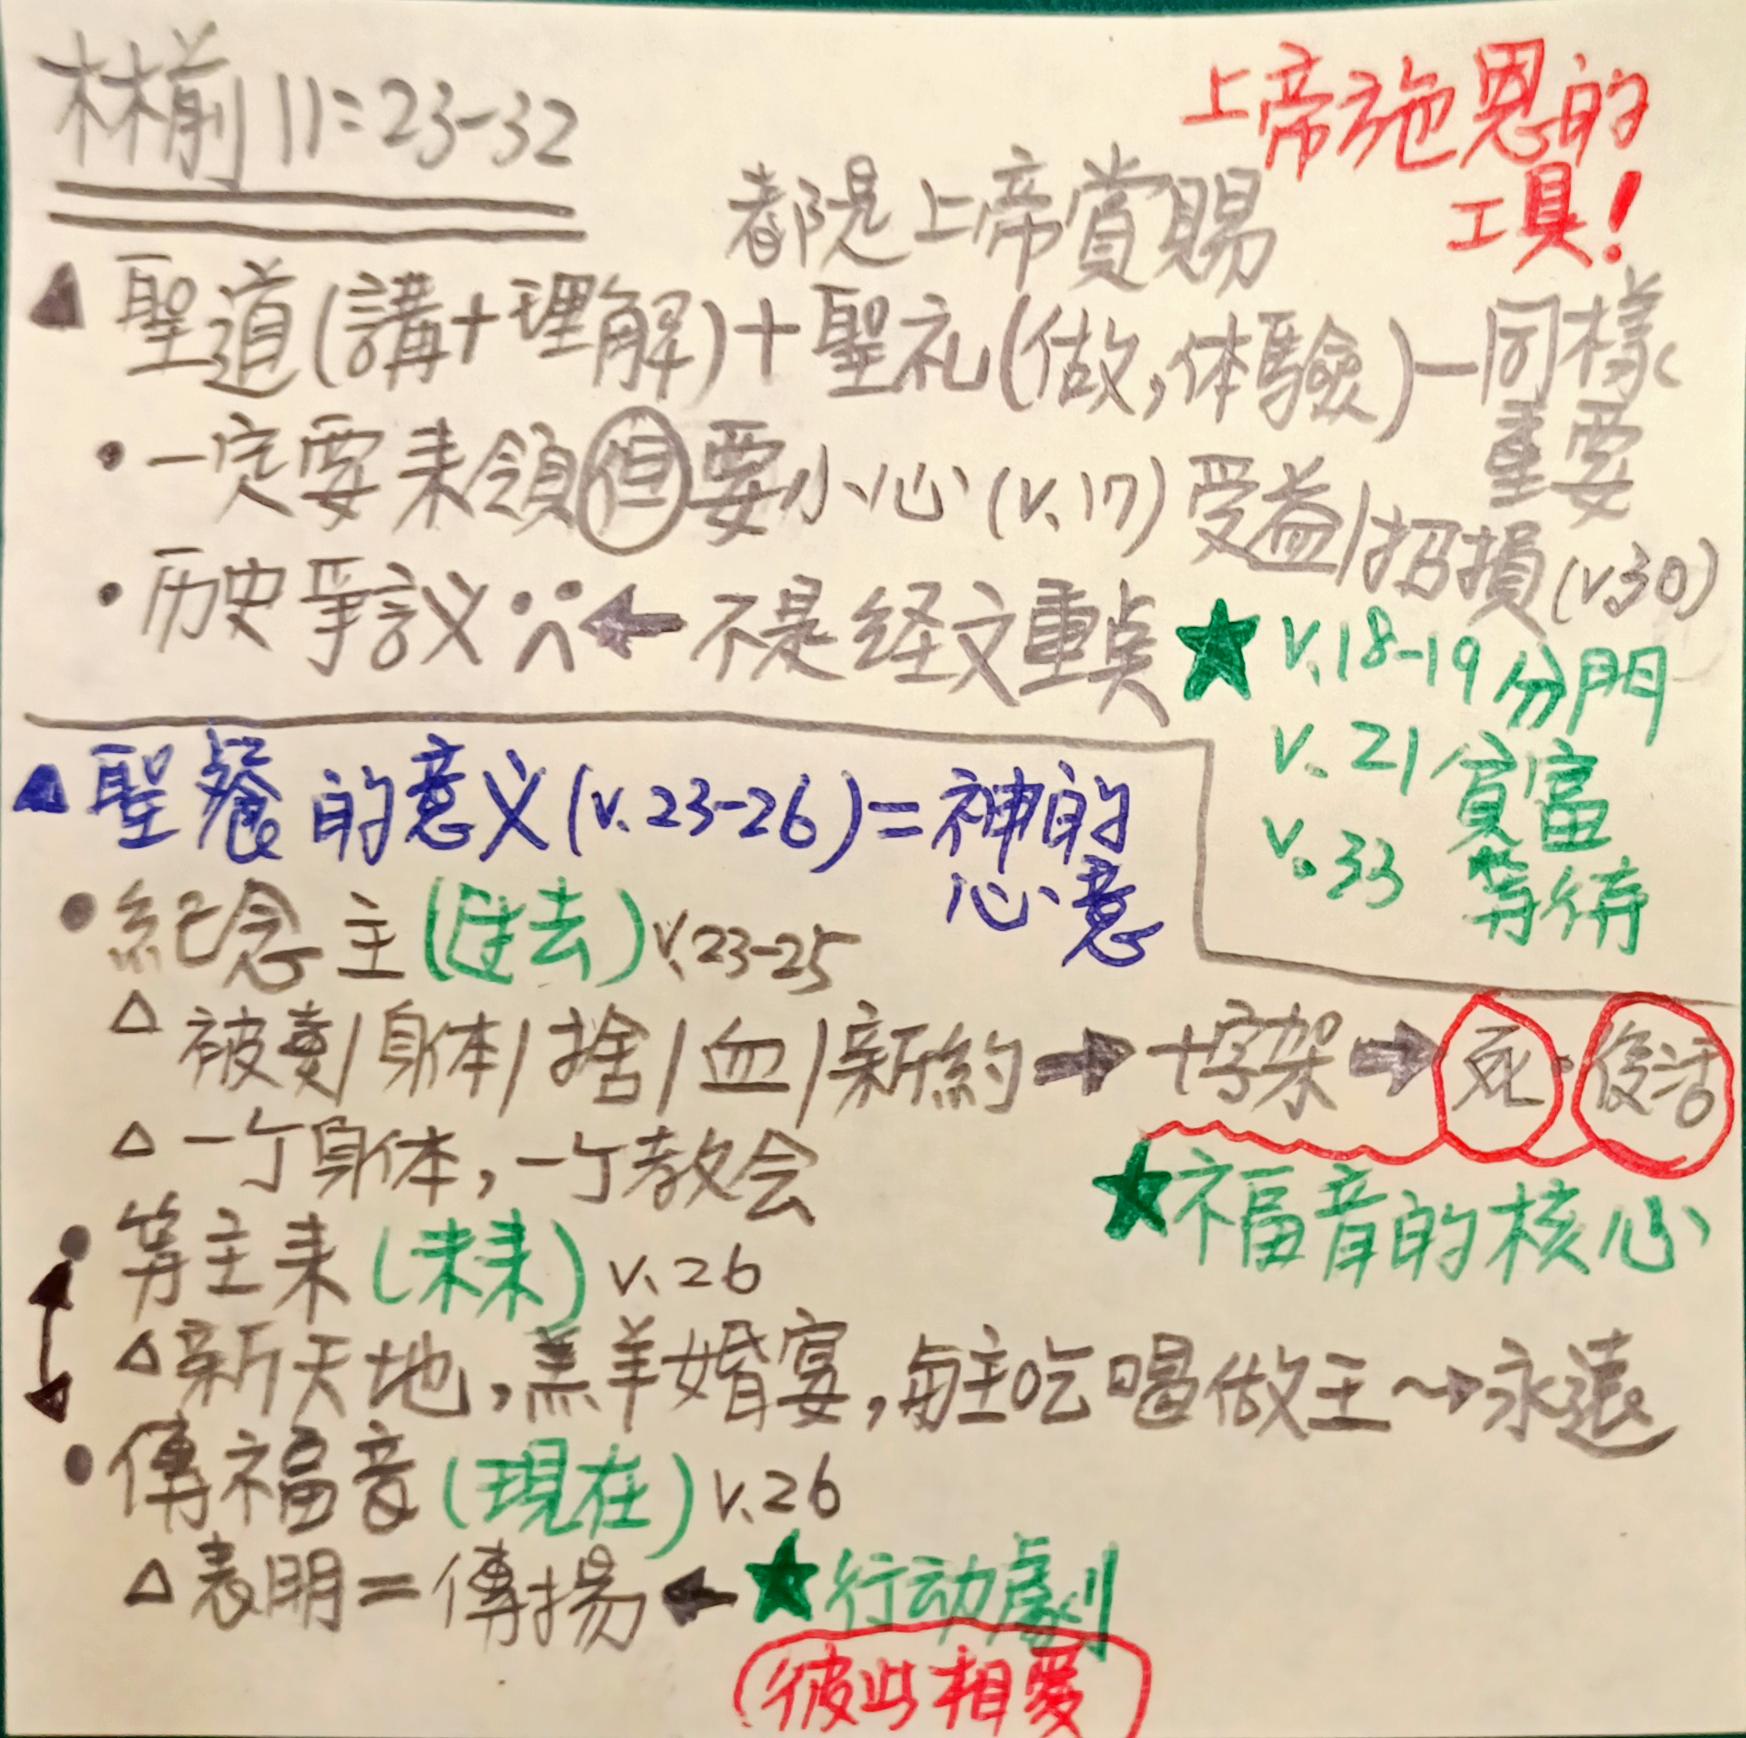 林前 11:23-32
上帝施恩的
工具!
都是上帝賞賜
聖道(講+理解)+聖礼(做,体驗)-同樣
重要
一定要来領但要小心(v.17)受益/招損(v30)
历史爭议 ← 不是経文重点
★ v.18-19分門
v.21貧富
v.33 等待
聖餐的意义(v.23-26)=神的
心意
紀念主(过去)v.23-25
△被賣/身体/捨/血/新約→十字架→死·復活
△一个身体,一个教会
★福音的核心
等主来(未来)v.26
△新天地,羔羊婚宴,与主吃喝做主~→永遠
傳福音(現在)v.26
△表明=傳揚←★行动劇
(彼此相爱)